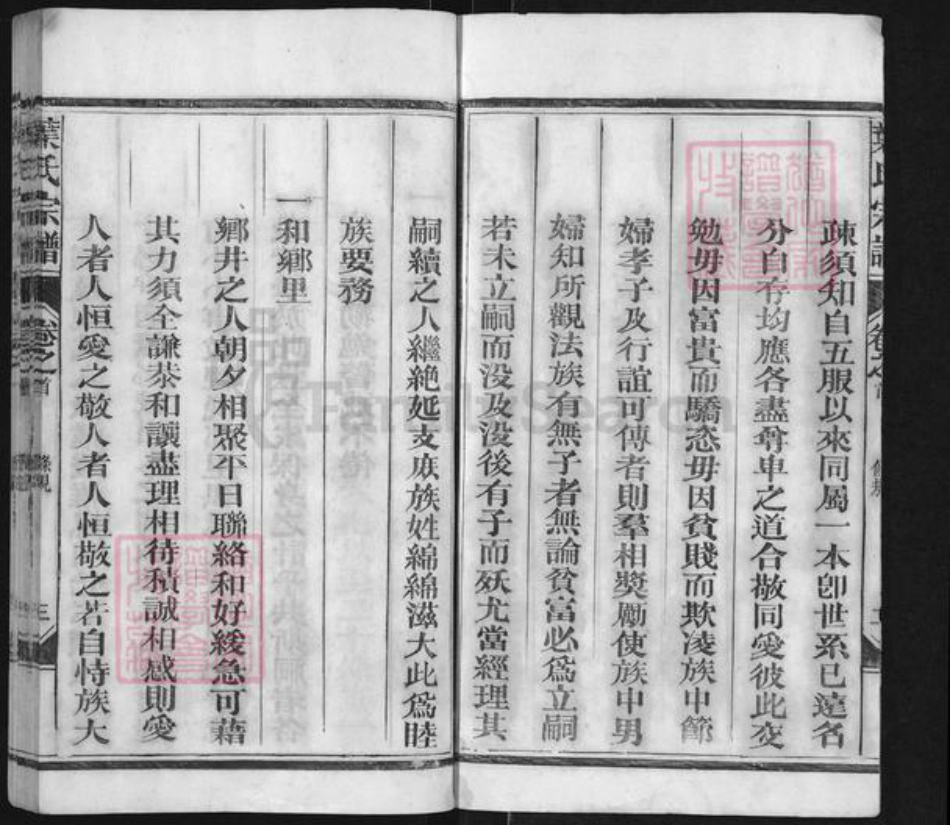 疎須知自五服以來同屬一本卽世系已遠名
分自存均應各盡尊卑之道合敬同愛彼此交
勉毋因富貴而驕恣毋因貧賤而欺凌族中節
婦孝子及行誼可傳者則羣相獎勵使族中男
婦知所觀法族有無子者無論貧富必爲立嗣
若未立嗣而没及没後有子而殀尤當經理其
嗣續之人繼絶延支庶族姓綿綿滋大此爲睦
族要務
一和鄉里
鄉井之人朝夕相聚平日聯絡和好緩急可藉
其力須全謙恭和讓盡理相待積誠相感則愛
人者人恒愛之敬人者人恒敬之若自恃族大
葉氏宗譜
卷之首
條規
三
FamilySearch